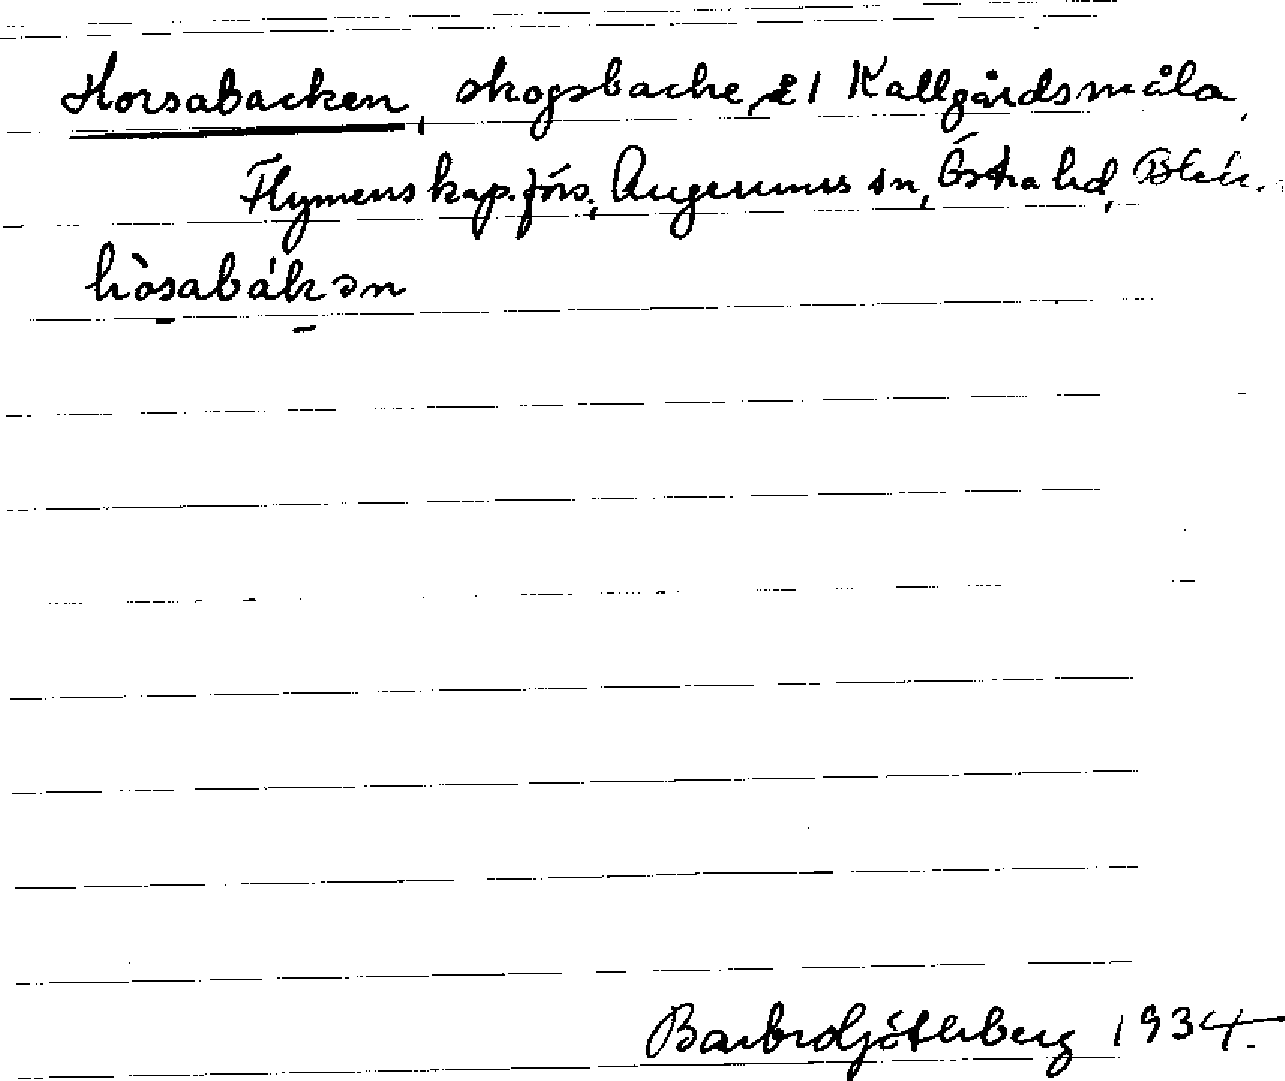 Horsabacken, skogsbacke, £1 Kallgårdsmåla,
Flymens kap.förs., Augerums sn, Östra hd, Blek.
hòsabákən
Barbro Göterberg 1934.